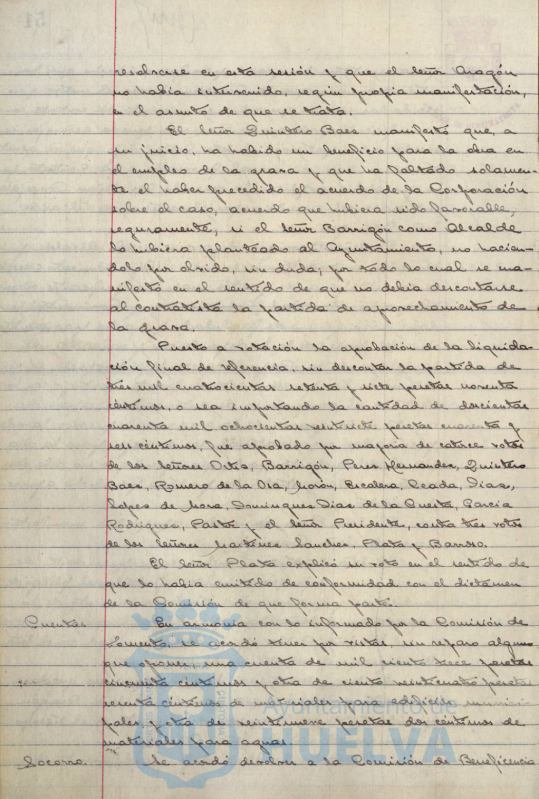 resolverse en esta sesión y que el Señor Aragón
no había intervenido, según propia manifestación,
en el asunto de que se trata.
El Señor Quintero Baez manifestó que, a
su juicio, ha habido un beneficio para la obra en
el empleo de la grava y que ha faltado solamen-
te el haber precedido el acuerdo de la Corporación
sobre el caso, acuerdo que hubiera sido favorable,
seguramente, si el Señor Barrigón como Alcalde
lo hubiera planteado al Ayuntamiento, no hacien-
dolo por olvido, sin duda; por todo lo cual se ma-
nifestó en el sentido de que no debía descontarse
al contratista la partida de aprovechamiento de
la grava.
Puesto a votación la aprobación de la liquida-
ción final de referencia, sin descontar la partida de
tres mil cuatrocientas setenta y siete pesetas noventa
céntimos, o sea importando la cantidad de doscientas
cuarenta mil ochocientas veintisiete pesetas cuarenta y
seis céntimos, fue aprobado por mayoría de catorce votos
de los Señores Ortiz, Barrigón, Perez Hernandez, Quintero
Baez, Romero de la Osa, Morón, Escalera, Tejada, Díaz,
Lopez de Mora, Dominguez Díaz de la Cuesta, García
Rodriguez, Pastor y el Señor Presidente, contra tres votos
de los Señores Martínez Sanchez, Plata y Barroso.
El Señor Plata explicó su voto en el sentido de
que lo había emitido de conformidad con el dictamen
de la Comisión de que forma parte.
Cuentas. En armonía con lo informado por la Comisión de
Fomento, se acordó tener por vistas, sin reparo alguno
que oponer, una cuenta de mil ciento trece pesetas
cincuenta céntimos y otra de ciento veinticuatro pesetas
sesenta céntimos de materiales para edificios munici-
pales y otra de veintinueve pesetas dos céntimos de
materiales para aguas.
Socorro. Se acordó devolver a la Comisión de Beneficencia
Ayuntamiento de
HUELVA